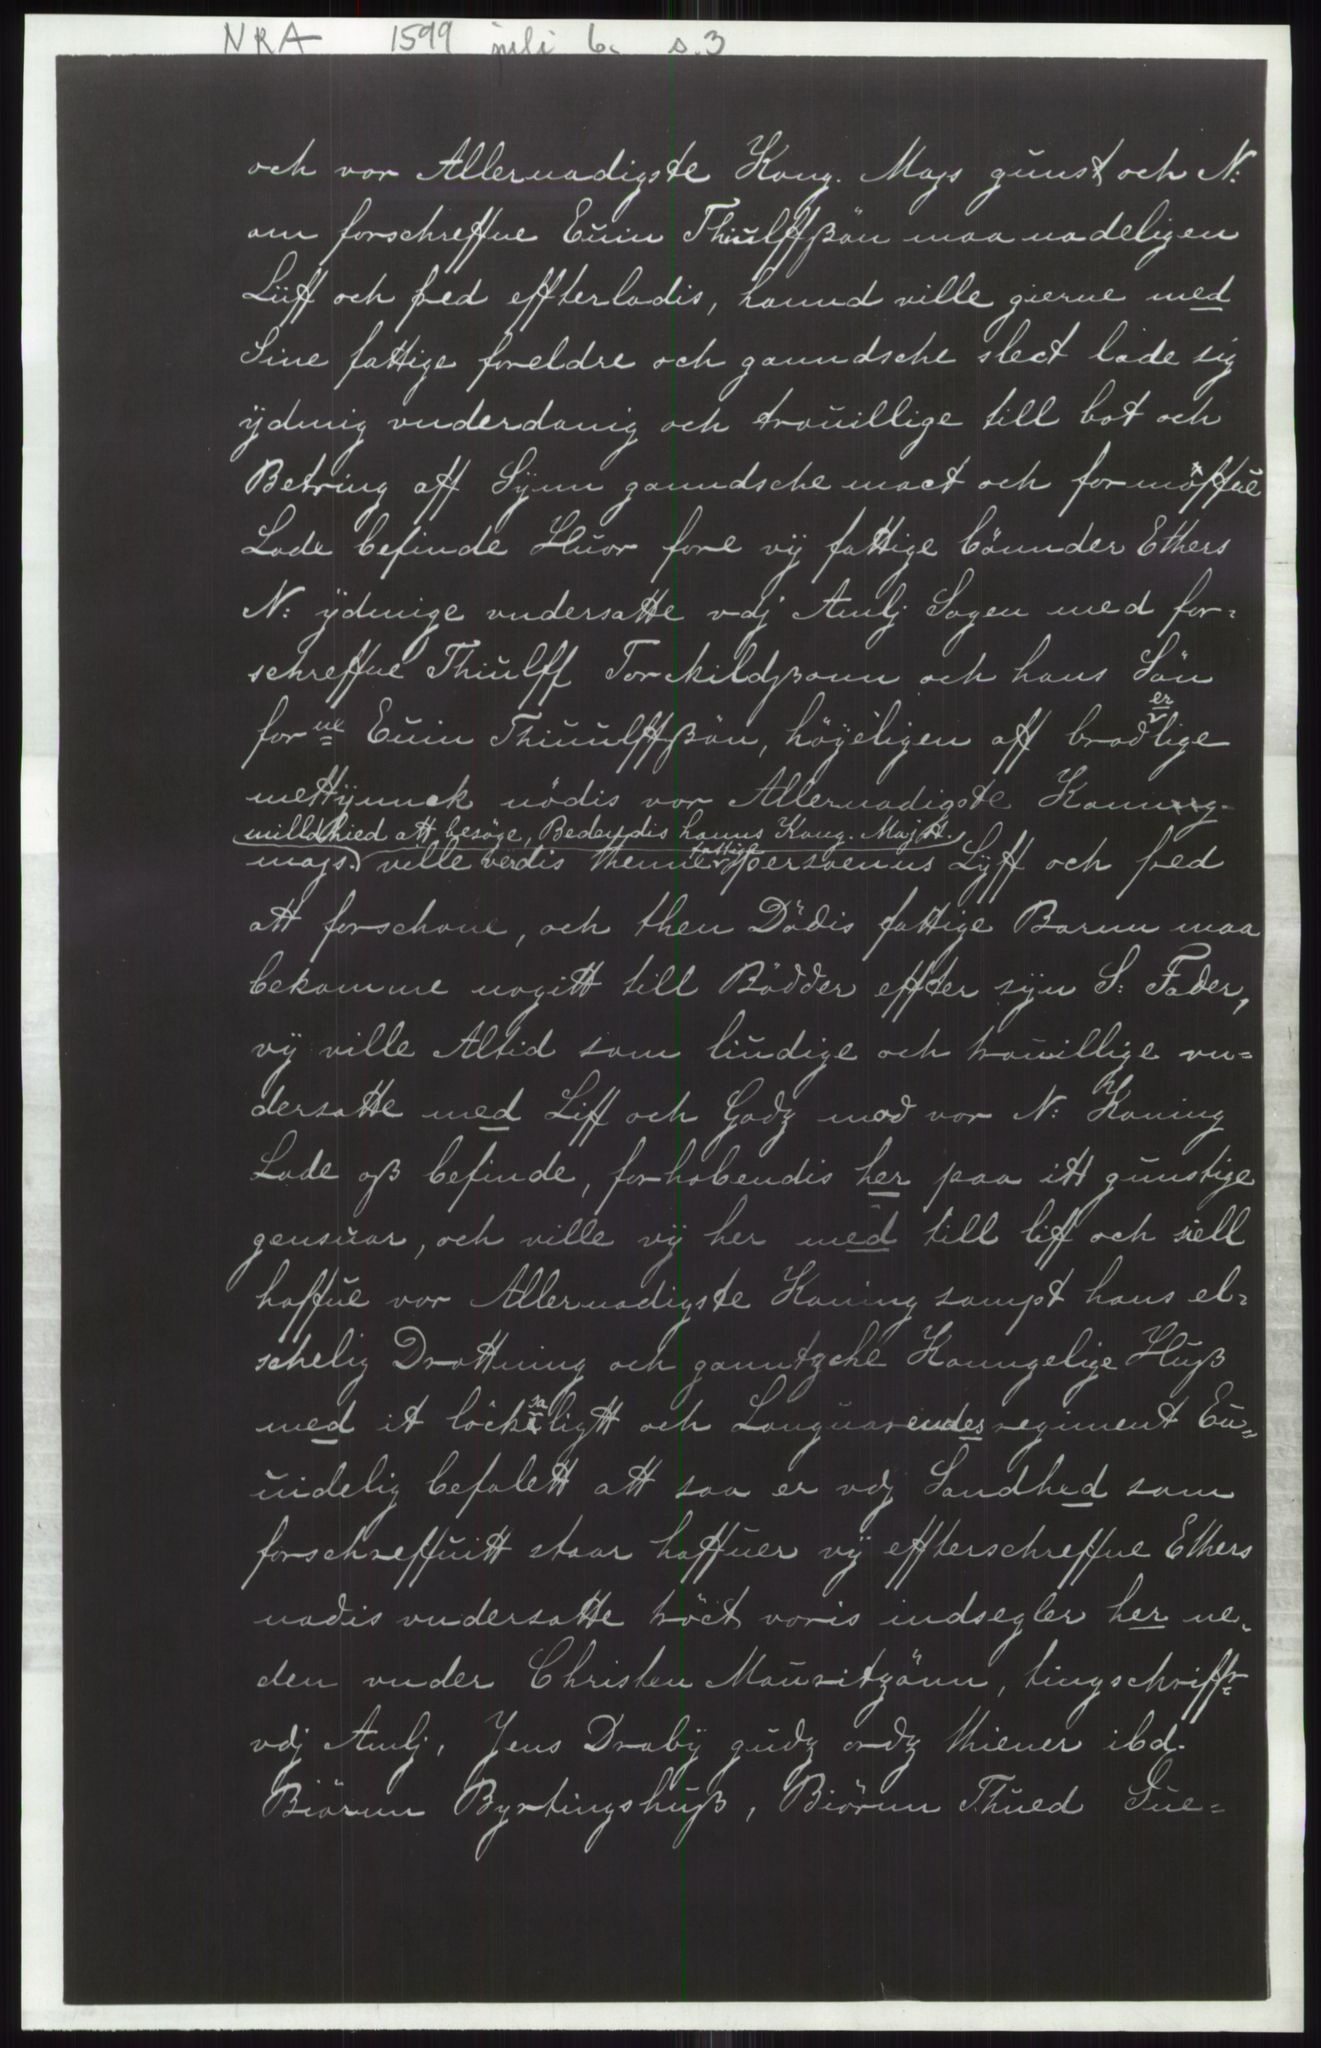 NRA 1599 juli 6. s. 3
och vor Allernadigste Kong. Mays gunst och N:
om forschreffne Euin Thiulffßön maa nadeligen
Liff och fred effterladis, hannd ville gierne med
Sine fattige foreldre och ganndsche slect lade sig
ÿdmig vnderdanig och trouillige till bot och
Betring aff Sÿnn ganndsche mact och formöffue
Lade befinde Huor fore vÿ fattige bönnder Ethers
N: ÿdmige vndersatte vdj Amlj Sogen med for-
schreffne Thiulff Torckildßonn och hans Sön
for ne Euin Thiuulffßön, höÿeligen aff broderlige
mettÿnnck nödis vor Allernadigste Konning-
milldhied att besöge, Bedendis hanns Kong. Majtt.
mays. ville verdis thenne fattige persoenns Lÿff och fred
att forschone, och then Dödis fattige Barnn maa
bekomme nogitt till Bödder effter sÿn S: Fader,
vÿ ville Altid som liudige och trouillige vn-
dersatte med Liff och Godz mod vor N: Koning
Lade oß befinde, forhobendis her paa itt gunstige
gensuar, och ville vÿ her med till liff och siell
haffue vor Allernadigste Koning sampt hans el-
schelig Drottning och ganntzche Konngelige Huß
med it löcksaligtt och Languarendes regiment Eu-
uidelig befalett att saa er vdj Sandhed som
forschreffuitt staar haffuer vÿ effterschreffne Ethers
nadis vndersatte tröct voris indsegler her ne-
den vnder Christen Mouritzönn, tingschriffr
vdj Amlj, Jens Drabÿ gudz ordz thiener ibd.
Biörnn Byrtingshuß, Biörnn Thued Gue-